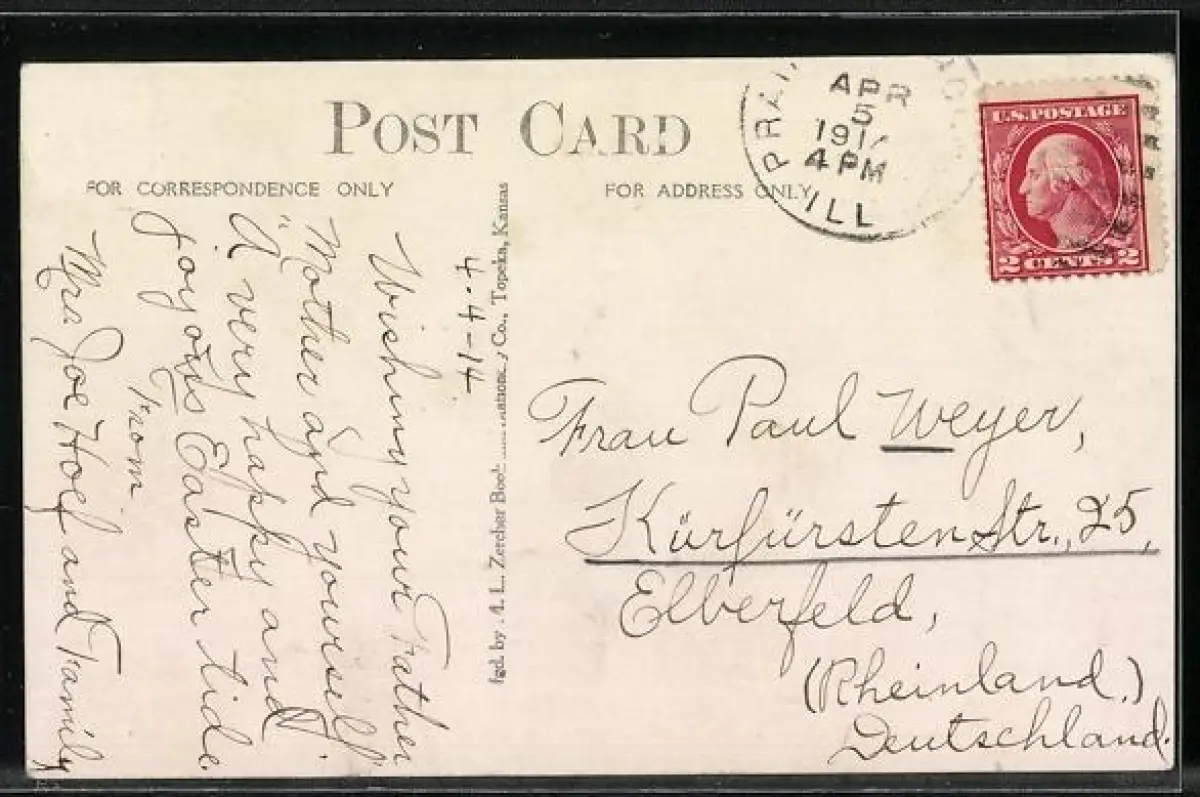 POST CARD
FOR CORRESPONDENCE ONLY
FOR ADDRESS ONLY
APR
5
191
4 PM
ILL
U.S. POSTAGE
2 CENTS 2
4-4-14
Wishing your Father
Mother and yourself
"A very happy and
joyous Easter tide
From
Mrs Joe Hoef and Family
fgd. by A. L. Zercher Book Co., Topeka, Kansas
Frau Paul Weyer,
Kürfürsten Str., 25,
Elberfeld,
(Rheinland.)
Deutschland.